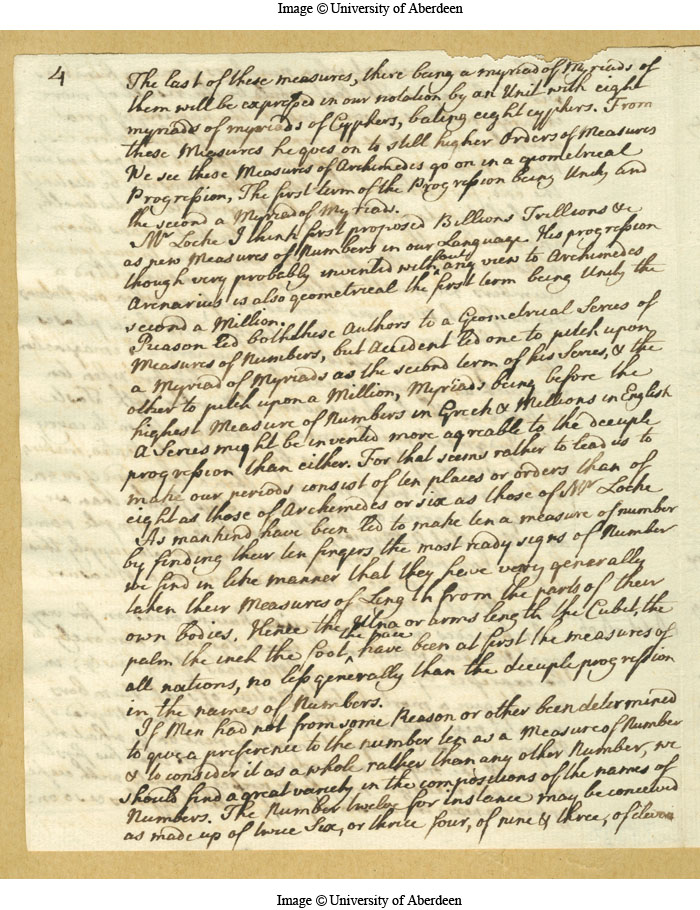 Image © University of Aberdeen
4
The last of these measures, there being a myriad of Myriads of
them will be expressed in our notation by an Unit with eight
myriads of myriads of Cyphers, bating eight cyphers. From
these Measures he goes on to still higher Orders of Measures
We see these Measures of Archimedes go on in a geometrical
Progression, The first term of the Progression being Unity and
the second a Myriad of Myriads.
Mr Locke I think first proposed Billions Trillions &c
as new Measures of Numbers in our Language. His progression
though very probably invented without any view to Archimedes
Arenarius is also geometrical the first term being Unity the
second a Million.
Reason led both these Authors to a Geometrical Series of
Measures of Numbers, but Accident led one to pitch upon
a Myriad of Myriads as the second term of his Series, & the
other to pitch upon a Million, Myriads being before the
highest Measure of Numbers in Greek & Millions in English
A Series might be invented more agreable to the decuple
progression than either. For that seems rather to lead us to
make our periods consist of ten places or orders than of
eight as those of Archimedes or six as those of Mr Locke
As mankind have been led to make ten a measure of number
by finding their ten fingers the most ready signs of Number
we find in like manner that they have very generally
taken their Measures of Length from the parts of their
own bodies. Hence the Ulna or arms length the Cubit, the
palm the inch the foot the pace have been at first the measures of
all nations, no less generally than the decuple progression
in the names of Numbers.
If Men had not from some Reason or other been determined
to give a preference to the number ten as a Measure of Number
& to consider it as a whole rather than any other Number, we
should find a great variety in the compositions of the names of
Numbers. The Number twelve for instance may be conceived
as made up of twice Six, or thrice four, of nine & three, of eleven
Image © University of Aberdeen